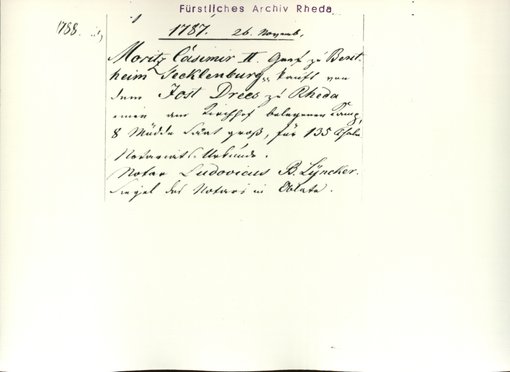 Fürstliches Archiv Rheda
1788.
1787. 26. Novemb.
Moritz Casimir II. Graf zu Bent-
heim Tecklenburg kauft von
dem Jost Drees zu Rheda
einen am Kirchhof belegenen Kamp,
8 Müdde Saat groß, für 135 Thaler
Notariats-Urkunde.
Notar Ludovicus B. Lyncker.
Siegel des Notars in Oblate.